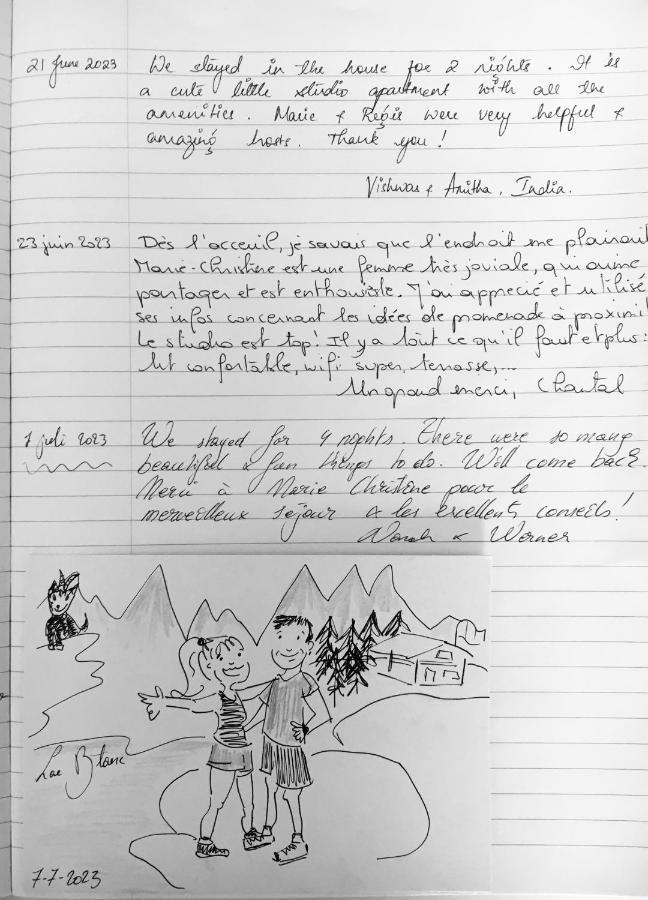 21 June 2023 We stayed in the house for 2 nights. It is
a cute little studio apartment with all the
amenities. Marie & Régis were very helpful &
amazing hosts. Thank you!
Vishwas & Anitha, India.
23 juin 2023 Dès l'acceuil, je savais que l'endroit me plairait
Marie-Christine est une femme très joviale, qui aime
partager et est enthousiste. J'ai apprecié et utilisé
ses infos concernant les idées de promenade à proximi
Le studio est top! Il y a tout ce qu'il faut et plus:
lit confortable, wifi super, terrasse,...
Un grand merci, Chantal
7 juli 2023 We stayed for 4 nights. There were so many
beautiful & fun things to do. Will come back.
Merci à Marie Christine pour le
merveilleux séjour & les excellents conseils!
& Werner
Lac Blanc
7-7-2023